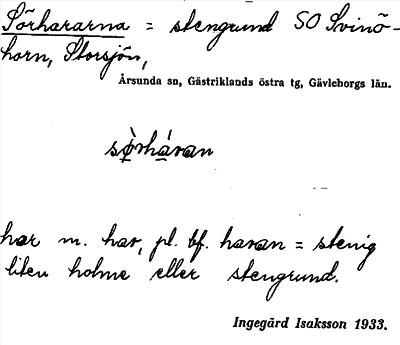 Sörhararna = stengrund SO Svinö-
horn, Storsjön,
Årsunda sn, Gästriklands östra tg, Gävleborgs län.
sø̀rháran
har m. har, pl. bf. haran = stenig
liten holme eller stengrund.
Ingegärd Isaksson 1933.